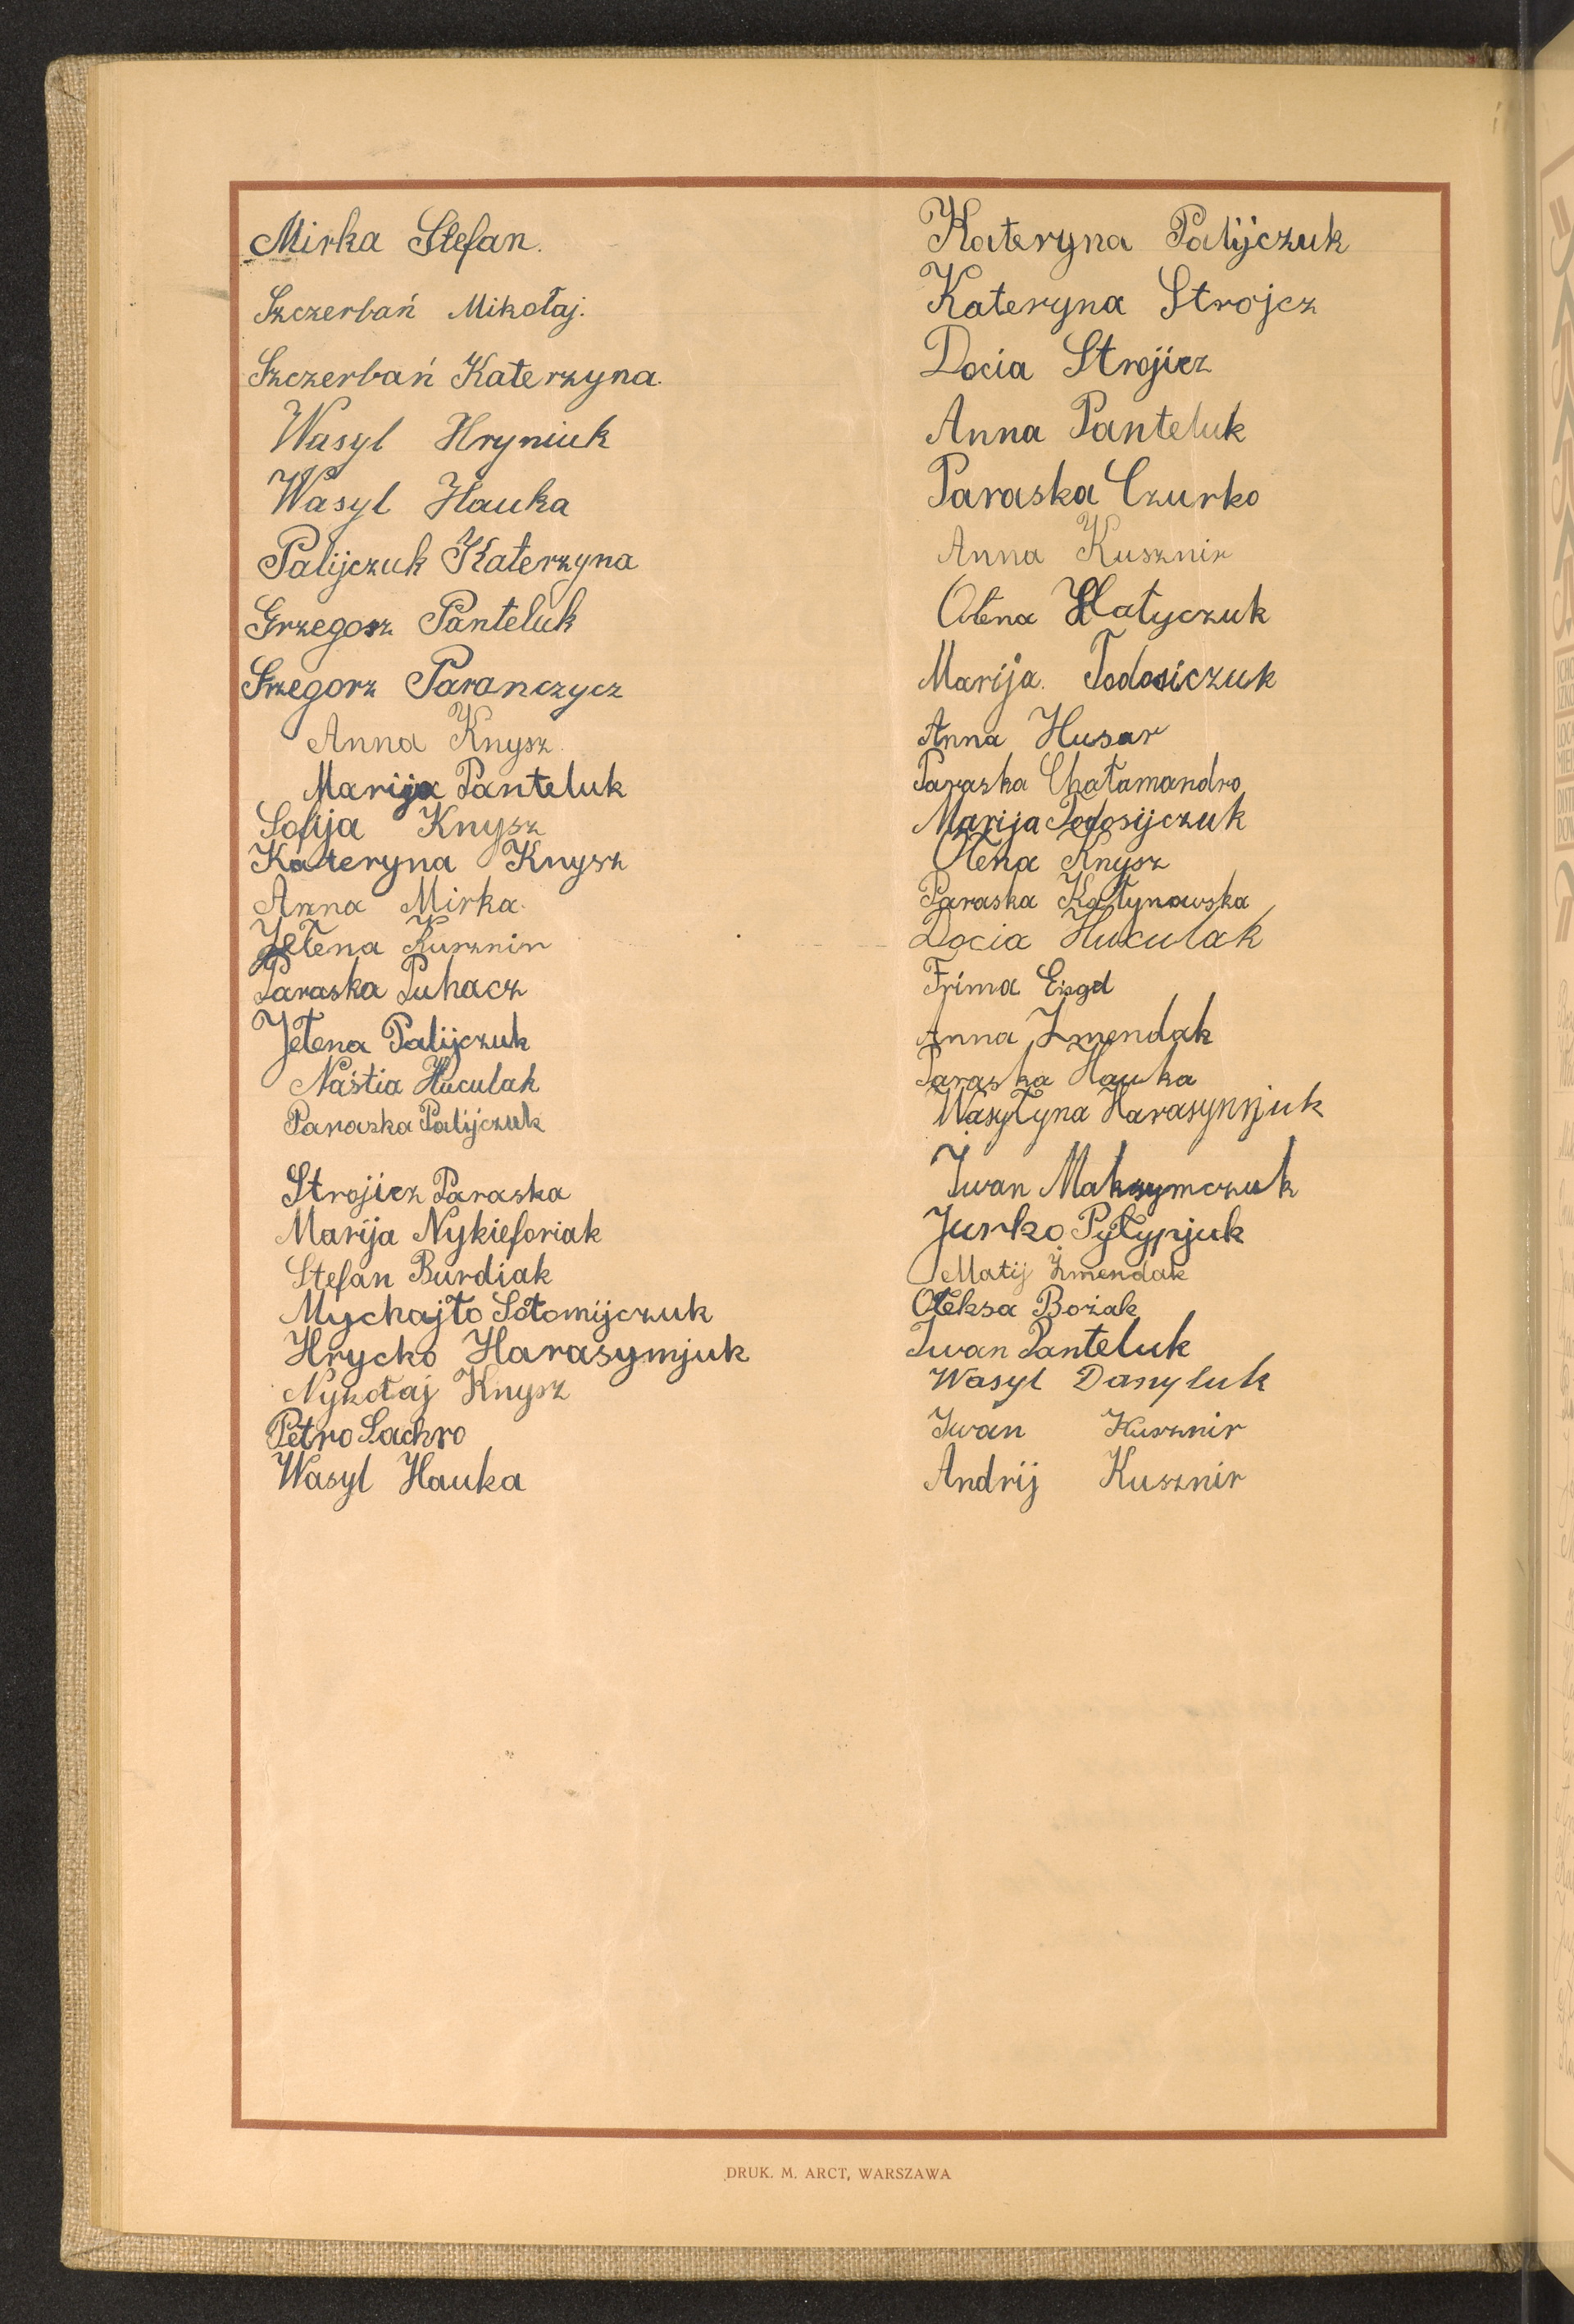 Mirka Stefan.
Szczerbań Mikołaj.
Szczerbań Katerzyna.
Wasyl Hryniuk
Wasyl Hauka
Palijczuk Katerzyna
Grzegosz Panteluk
Grzegorz Paranczycz
Anna Knysz.
Marija Panteluk
Sofija Knysz
Kateryna Knysz
Anna Mirka.
Jełena Kusznir
Paraska Puhacz
Jełena Palijczuk
Naśtia Huculak
Paraska Palijczuk
Strojicz Paraska
Marija Nykieforiak
Stefan Burdiak
Mychajło Sołomijczuk
Hryćko Harasymjuk
Nykołaj Knysz
Petro Lachro
Wasyl Hauka
Kateryna Palijczuk
Kateryna Strojcz
Docia Strojicz
Anna Panteluk
Paraska Czurko
Anna Kusznir
Ołena Hłatyczuk
Marija. Todosiczuk
Anna Husar
Paraska Chałamandro
Marija Todosijczuk
Ołena Knysz
Paraska Kałynowska
Docia Huculak
Frima
Anna Zmendak
Paraska Hauka
Wasyłyna Harasymjuk
Iwan Maksymczuk
Jurko Pyłypjuk
Matij Żmendak
Ołeksa Bożak
Iwan Panteluk
Wasyl Danyluk
Iwan Kusznir
Andrij Kusznir
DRUK. M. ARCT, WARSZAWA